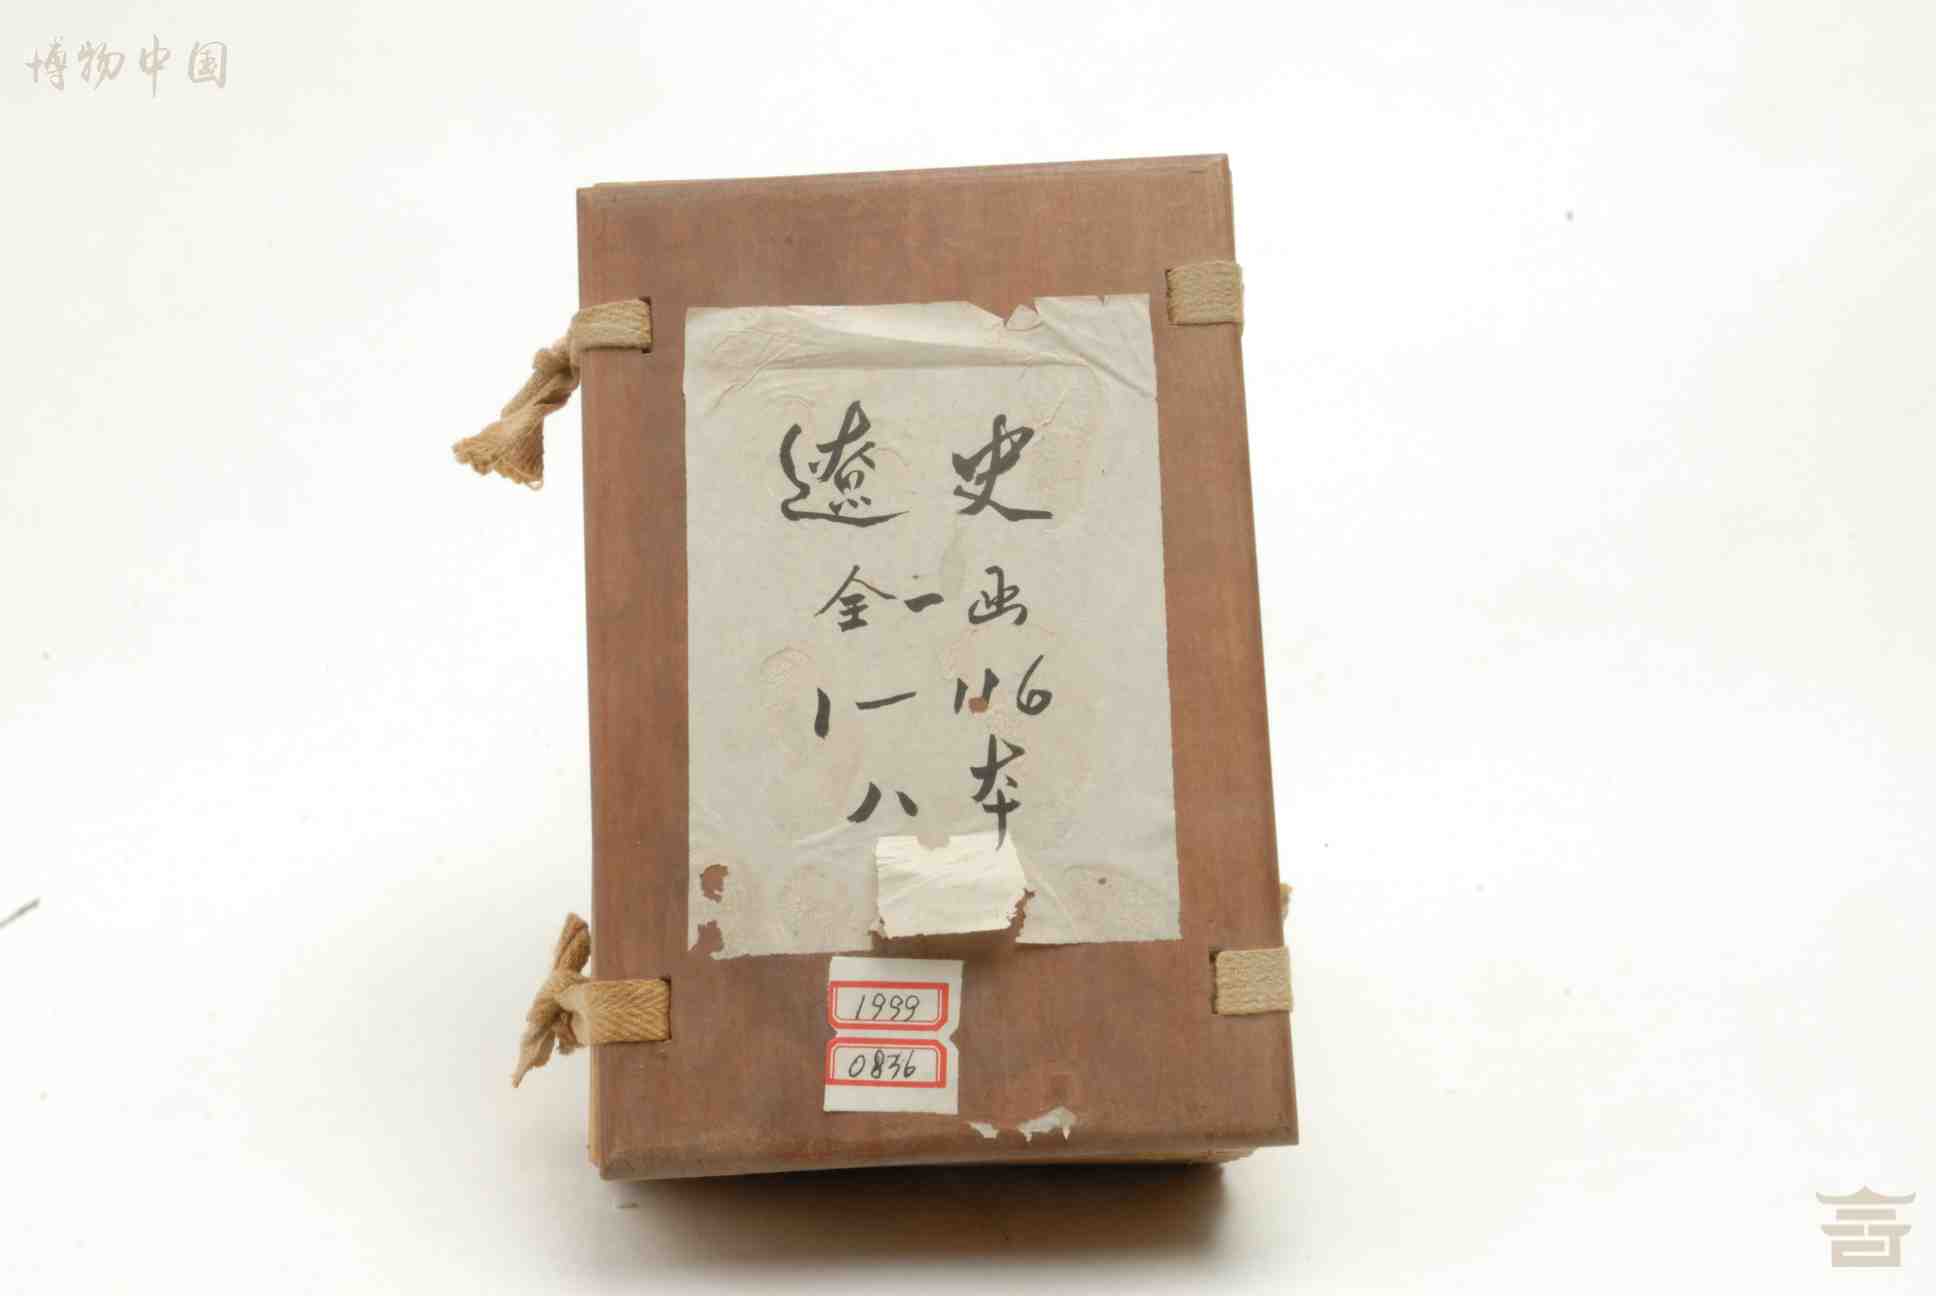 博物中国
遼史
全一函
1一116
八本
1999
0836